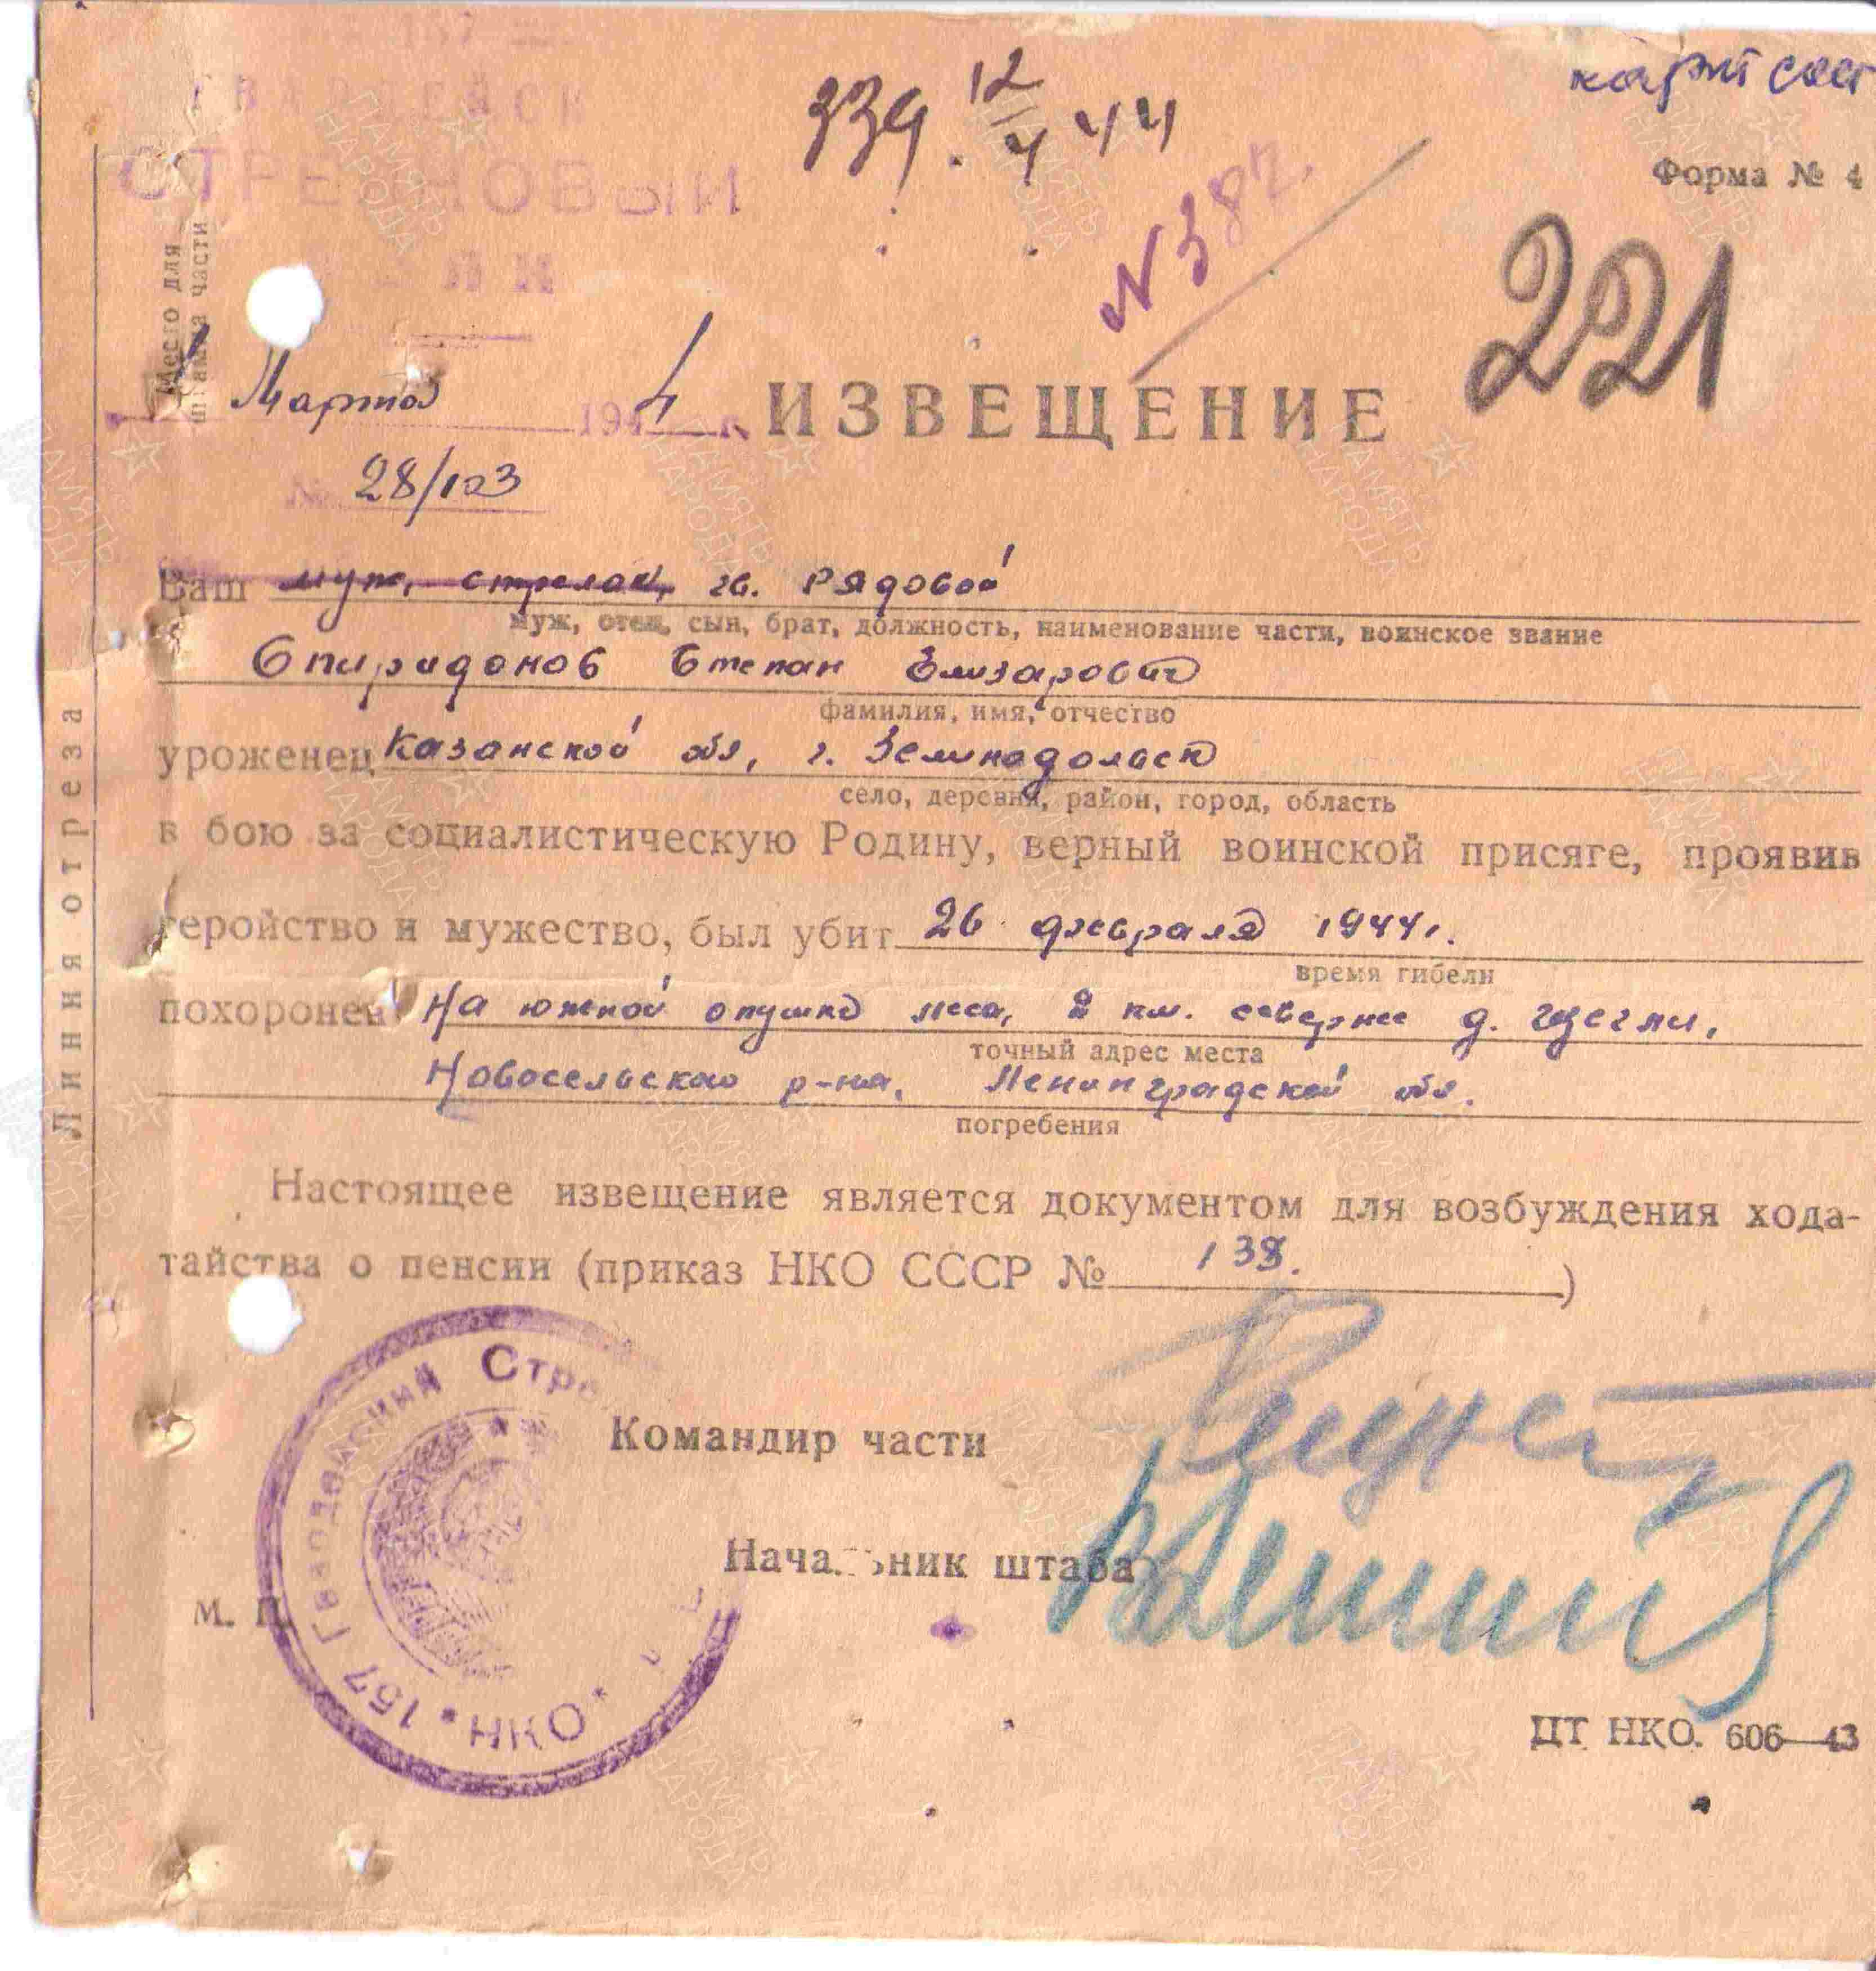 339. 12/4 44
карт сост
СТРЕЛКОВЫЙ
Форма № 4
N 387.
221
Место для
штампа части
Марта 1944 г.
ИЗВЕЩЕНИЕ
28/103
Ваш муж, стрелок, гв. Рядовой
муж, отец, сын, брат, должность, наименование части, воинское звание
Спиридонов Степан Элизарович
фамилия, имя, отчество
уроженец Казанской обл, г. Зелинодольск
село, деревня, район, город, область
в бою за социалистическую Родину, верный воинской присяге, проявив
геройство и мужество, был убит 26 февраля 1944 г.
время гибели
похоронен На южной опушке леса, 2 км. севернее д. Щегли,
точный адрес места
Новосельского р-на, Ленинградской обл.
погребения
Настоящее извещение является документом для возбуждения хода-
тайства о пенсии (приказ НКО СССР № 138. )
Линия отреза
Командир части
Начальник штаба
М. П.
157 Гвардейский Стре
* НКО *
ЦТ НКО. 606—43
ПАМЯТЬ НАРОДА